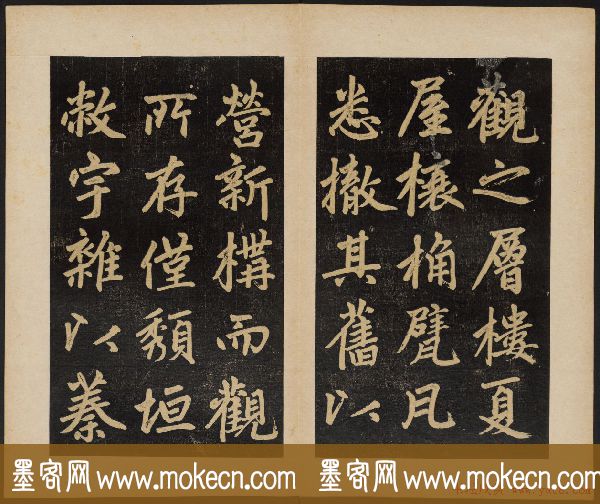 觀之層樓夏
屋榱桷甓凡
悉撤其舊以
營新構而觀
所存僅頹垣
敝宇雜以蓁
墨客网 www.mokecn.com
墨客网 www.mokecn.com